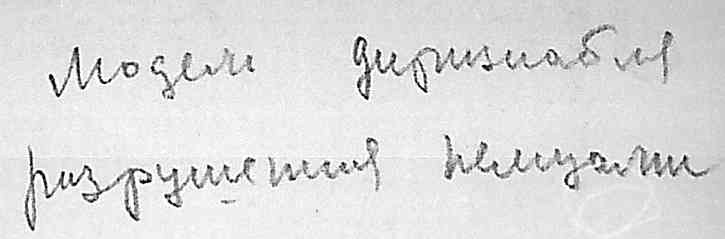 Модель дирижабля
разрушения немцами